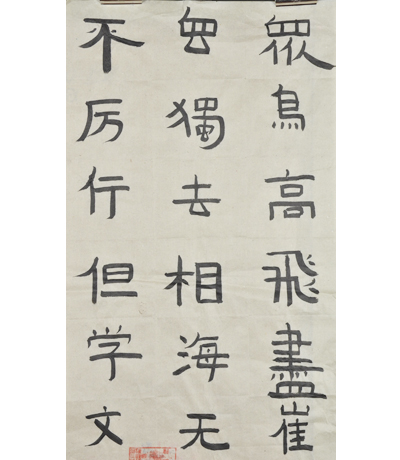 眾鳥高飛盡崔
血獨去相海无
不厉行但学文